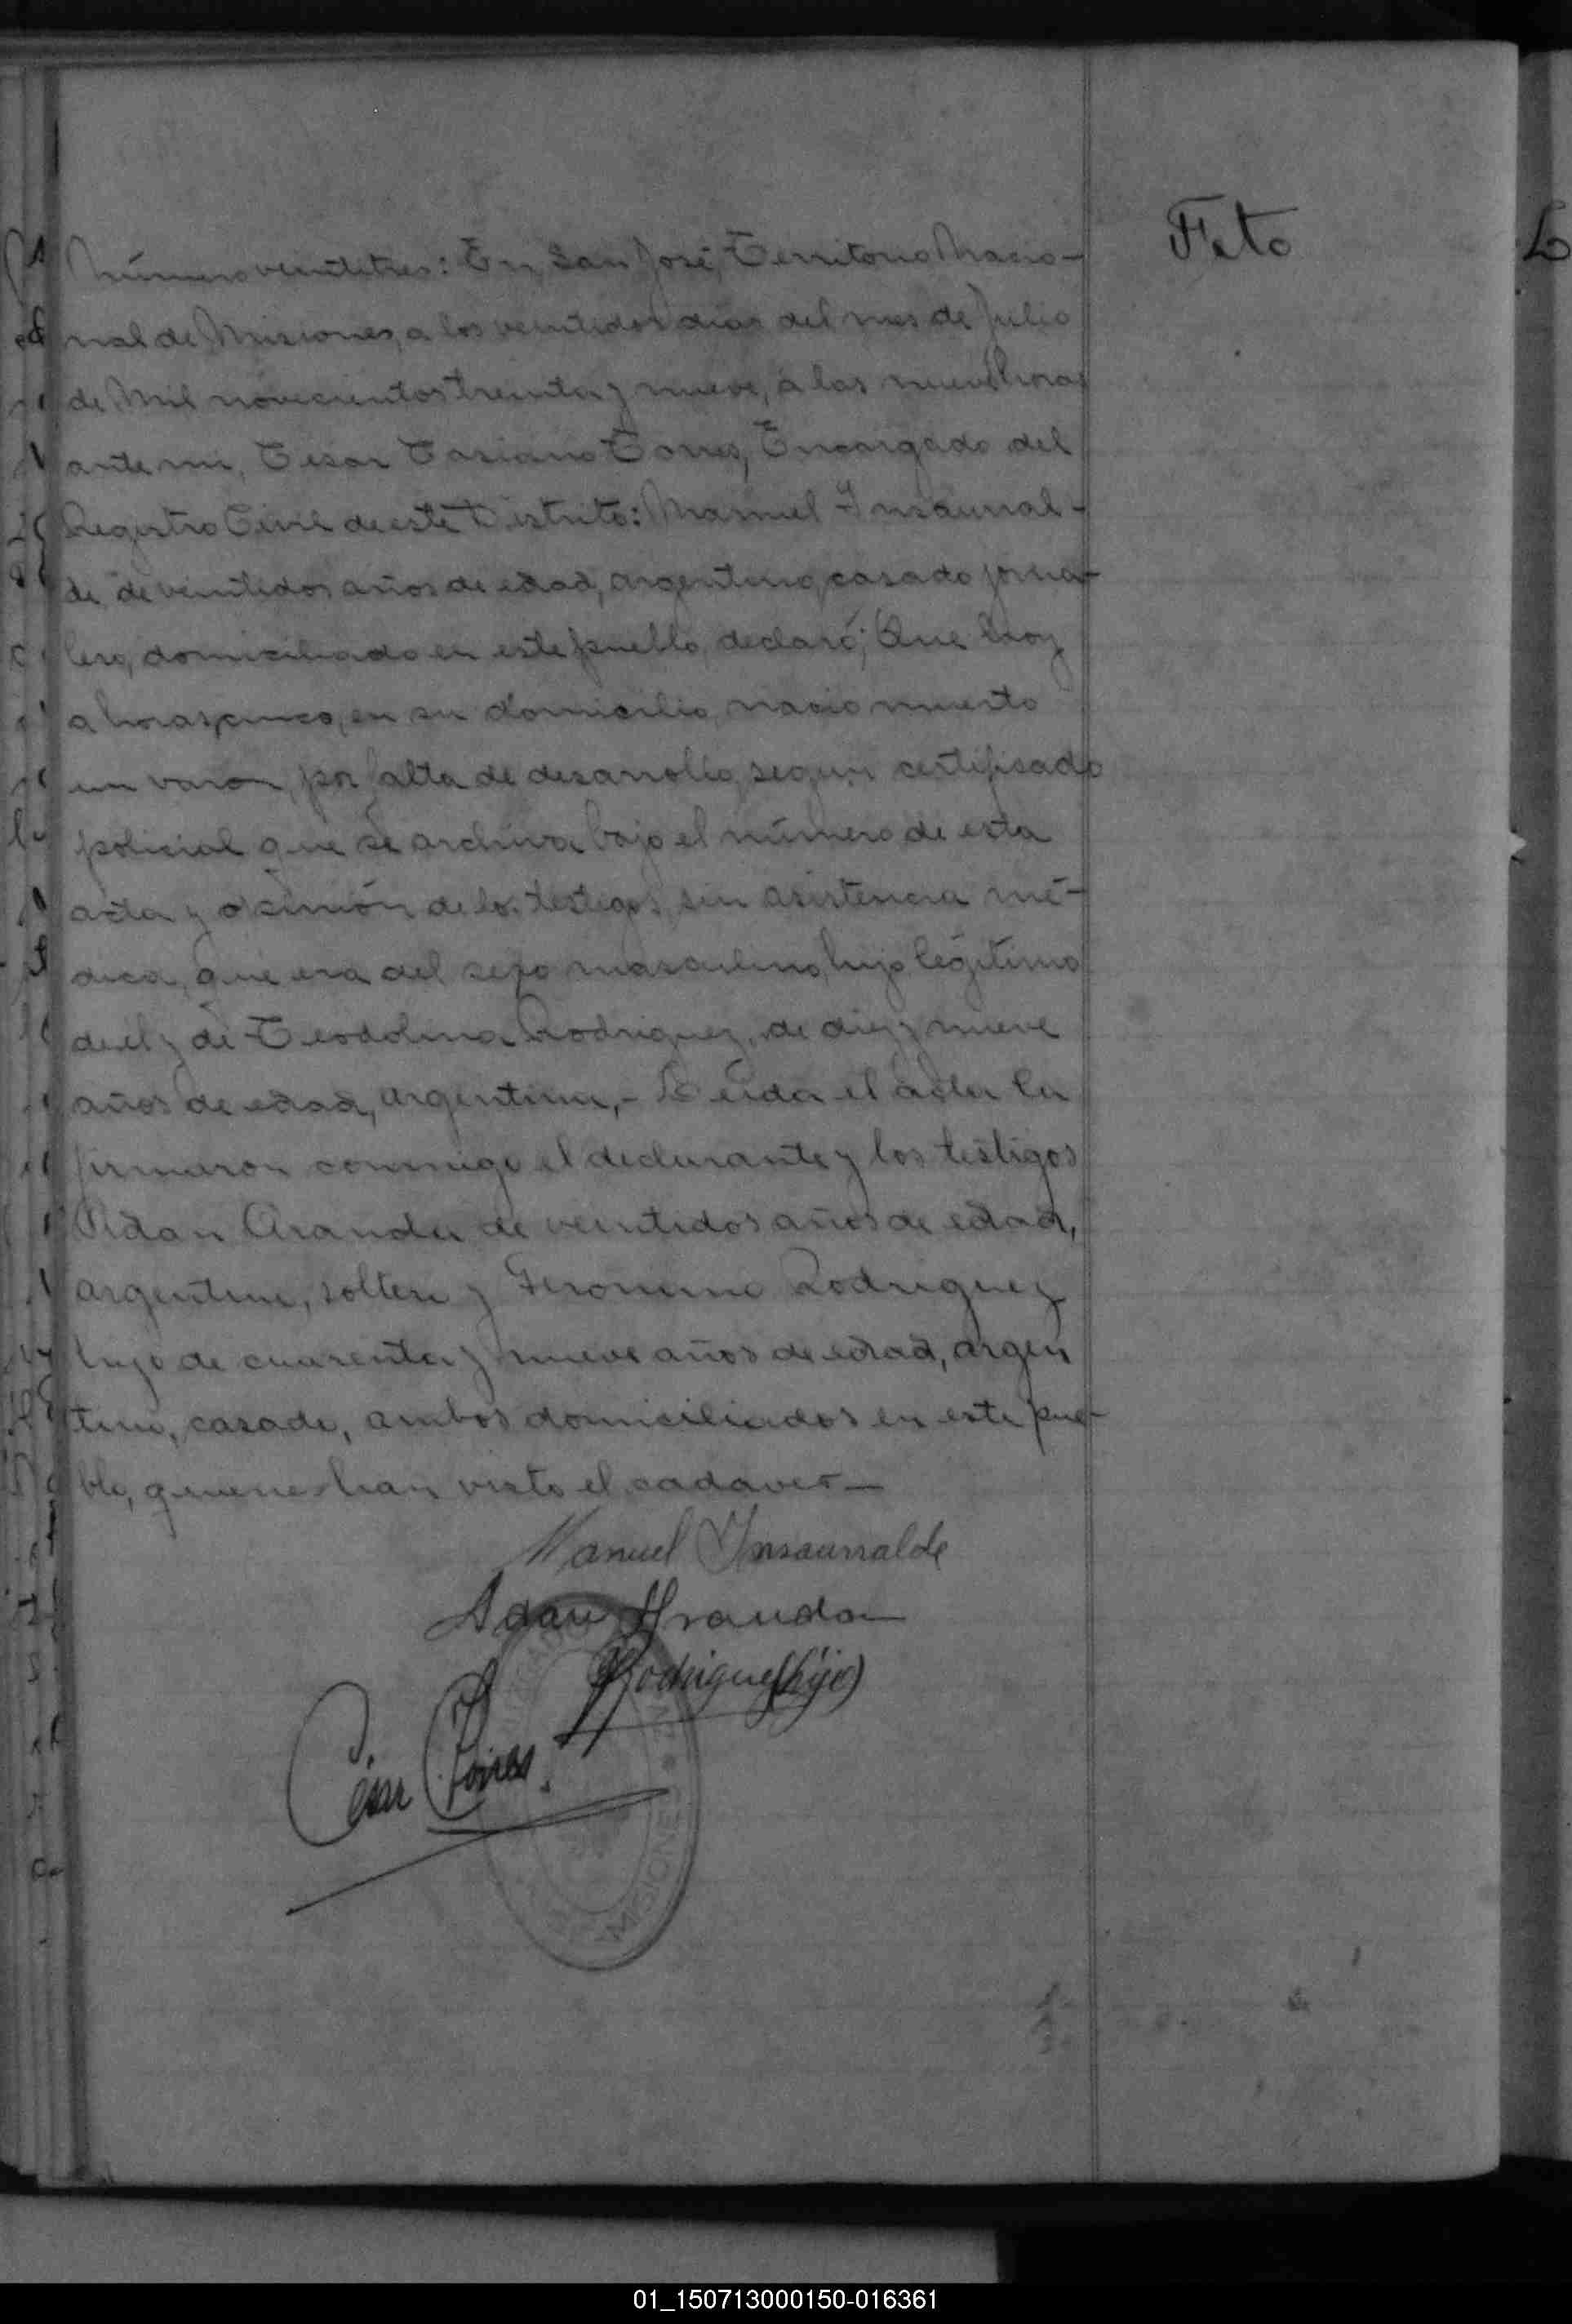 Feto
Número veintitres: En San José, Territorio Nacio-
nal de Misiones, a los veintidos dias del mes de Julio
de Mil novecientos treinta y nueve, a las nueve horas
ante mi, Cesar Casiano Torres, Encargado del
Registro Civil de este Distrito: Manuel Insaurral-
de, de veintidos años de edad, argentino, casado jorna-
lero, domiciliado en este pueblo, declaró; Que hoy
a horas cinco, en su domicilio, nacio muerto
un varon, por falta de desarrollo, segun certificado
policial que se archiva bajo el número de esta
acta y opinión de los testigos, sin asistencia mé-
dica, que era del sexo masculino, hijo legítimo
de el y de Teodolina Rodriguez, de diez y nueve
años de edad, argentina,- Leida el acta la
firmaron conmigo el declarante y los testigos
Adan Aranda de veintidos años de edad,
argentino, soltero y Geronimo Rodriguez
hijo de cuarenta y nueve años de edad, argen
tino, casado, ambos domiciliados en este pue-
blo, quienes han visto el cadaver-
Manuel Insaurralde
Adan Aranda
Rodriguez (hijo)
César Torres.
MISIONES
01_150713000150-016361